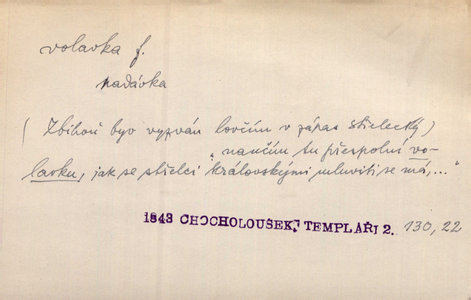 volavka f.
nadávka
(Zbihoň byv vyzván lovčím v zápas střelecký)
"naučím tu přespolní vo-
lavku, jak se střelci královskými mluviti se má,..."
1843 CHOCHOLOUŠEK, TEMPLÁŘI 2. 130,22